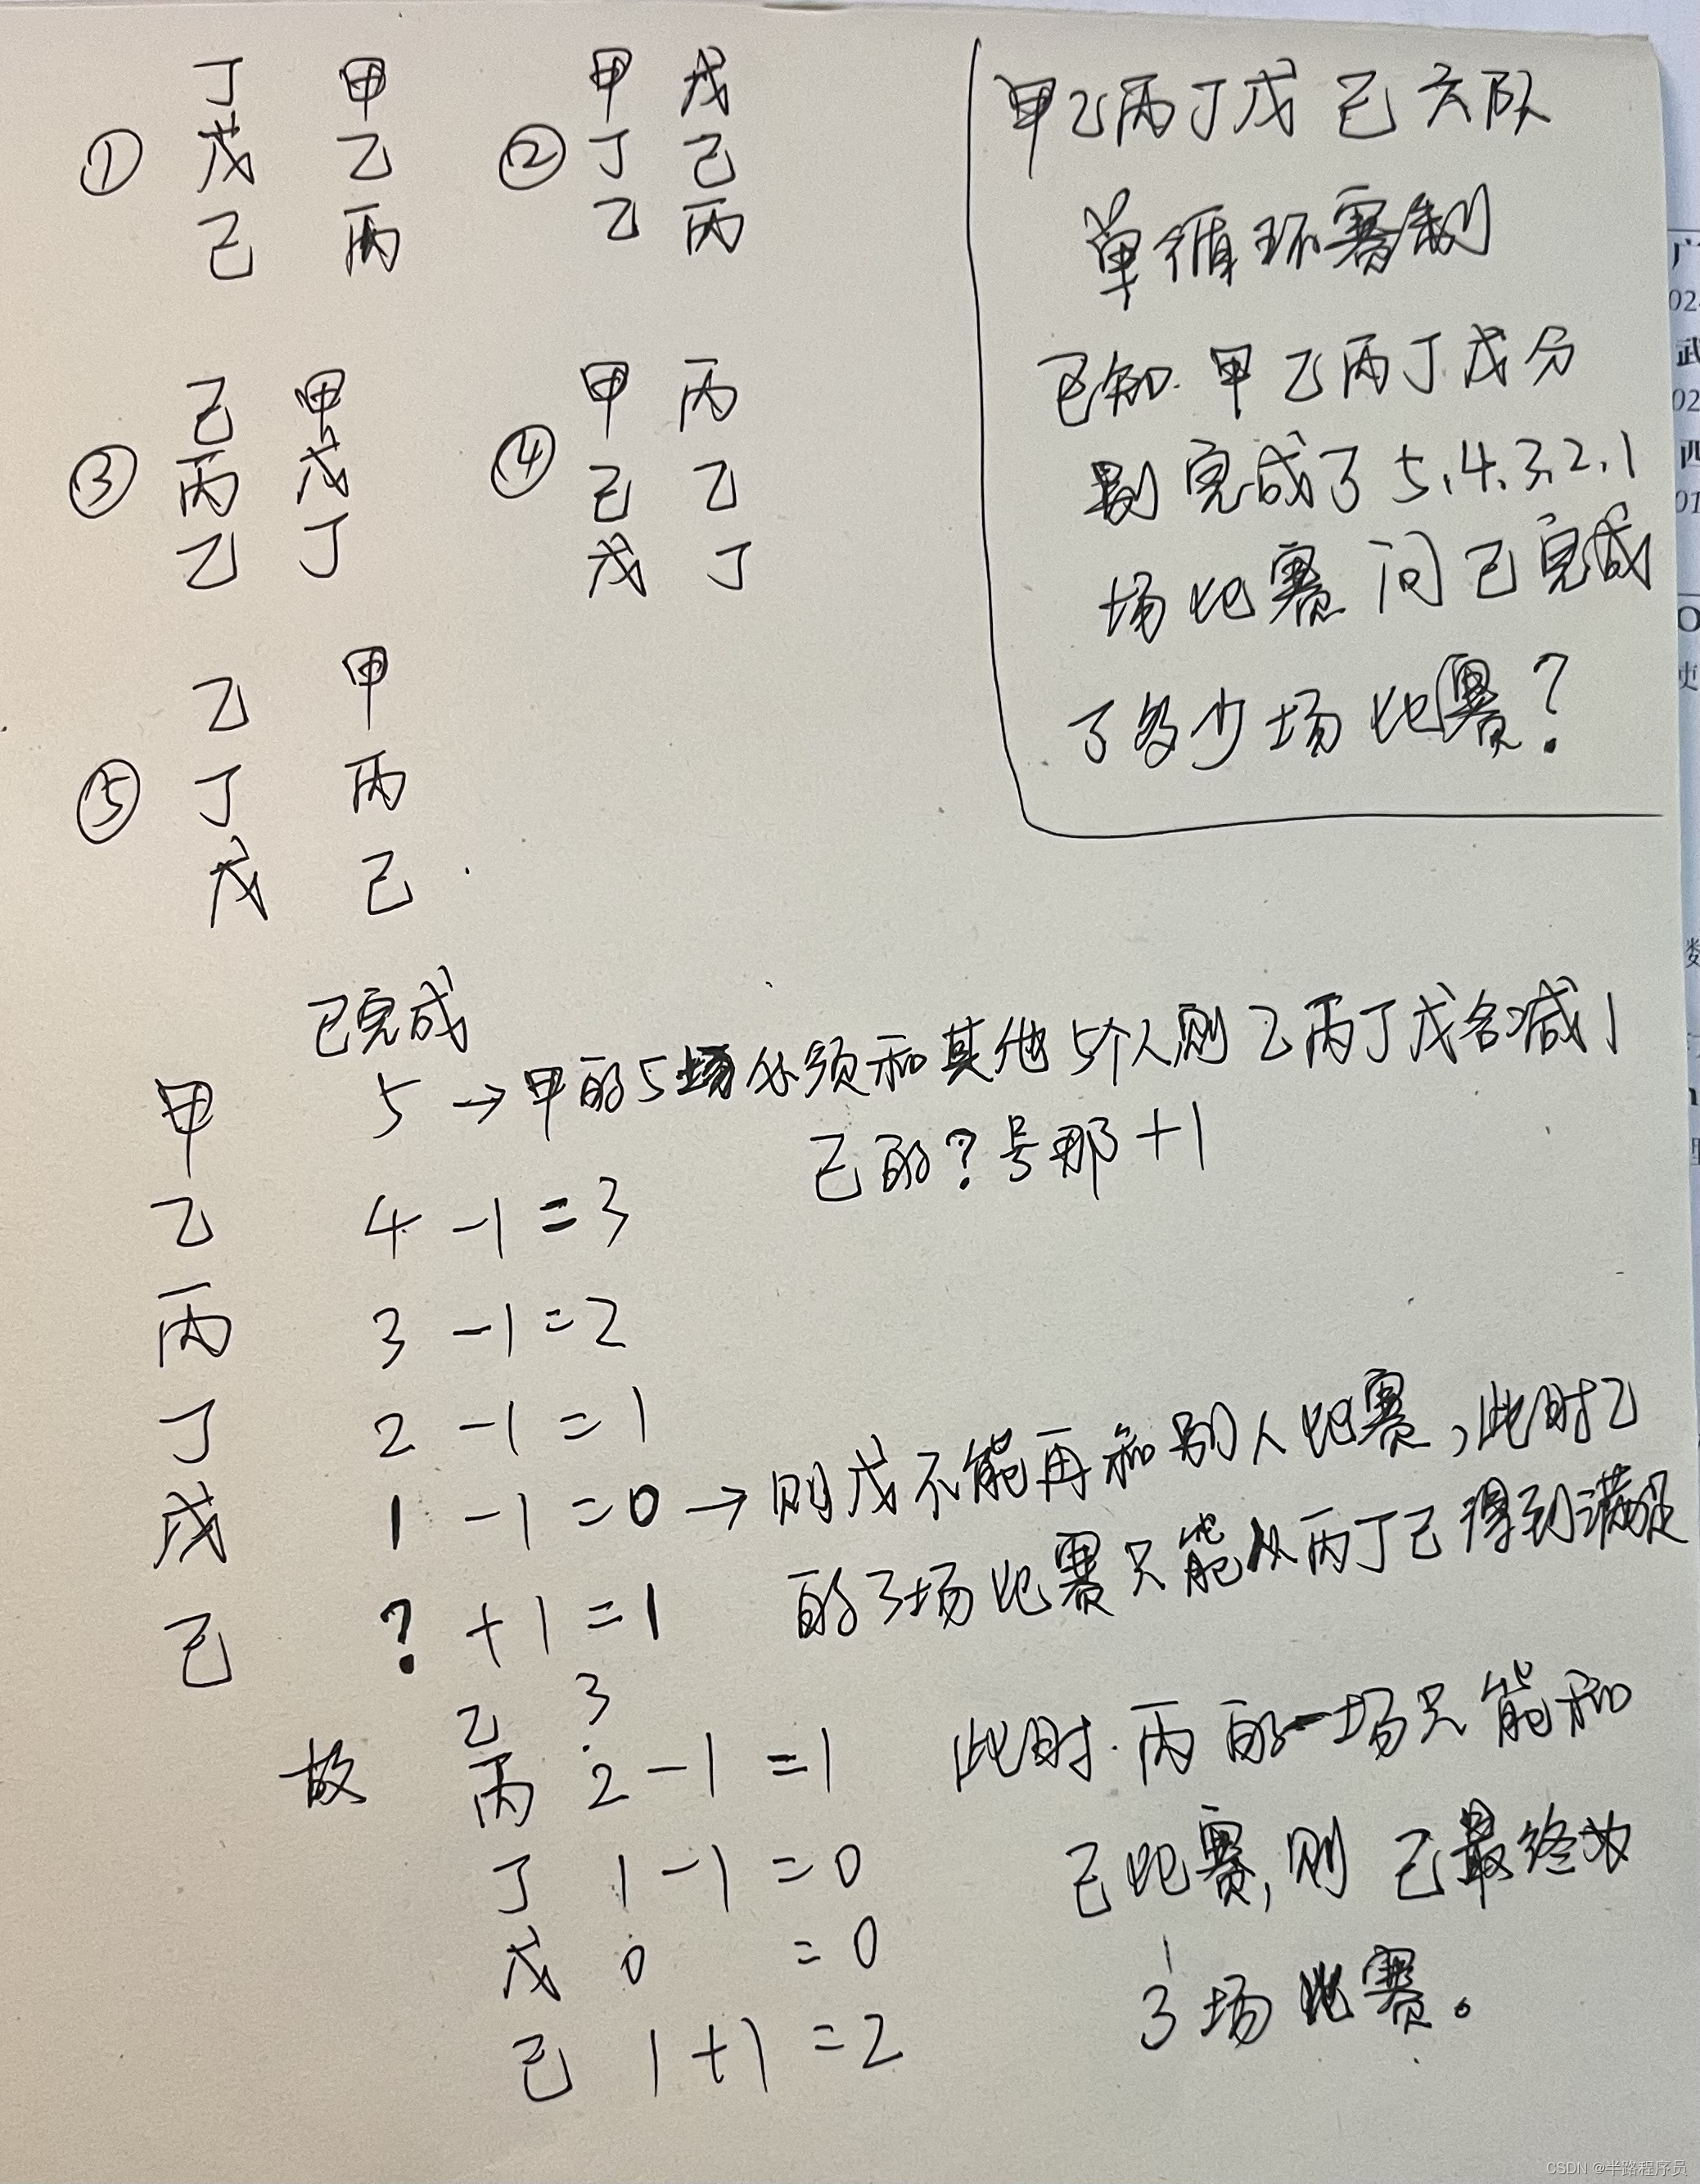 丁 甲
① 戊 乙
己 丙
甲 戊
② 丁 己
乙 丙
己 甲
③ 丙 戊
乙 丁
甲 丙
④ 己 乙
戊 丁
乙 甲
⑤ 丁 丙
戊 己
甲乙丙丁戊己六队
单循环赛制
已知.甲乙丙丁戊分
别完成了5、4、3、2、1
场比赛 问己完成
了多少场比赛?
已完成
甲 5 → 甲的5场必须和其他5个人则乙丙丁戊各减1
己的?号那+1
乙 4 -1 =3
丙 3 -1 =2
丁 2 -1 =1
戊 1 -1 =0 → 则戊不能再和别人比赛,此时乙
的3场比赛只能从丙丁己得到满足
己 ? +1 =1
乙 3
故 丙 2 -1 =1
丁 1 -1 =0
戊 0 =0
己 1+1 =2
此时.丙的一场只能和
己比赛,则己最终为
3场比赛。
广
024
武
02
西
01
数
CSDN @半路程序员